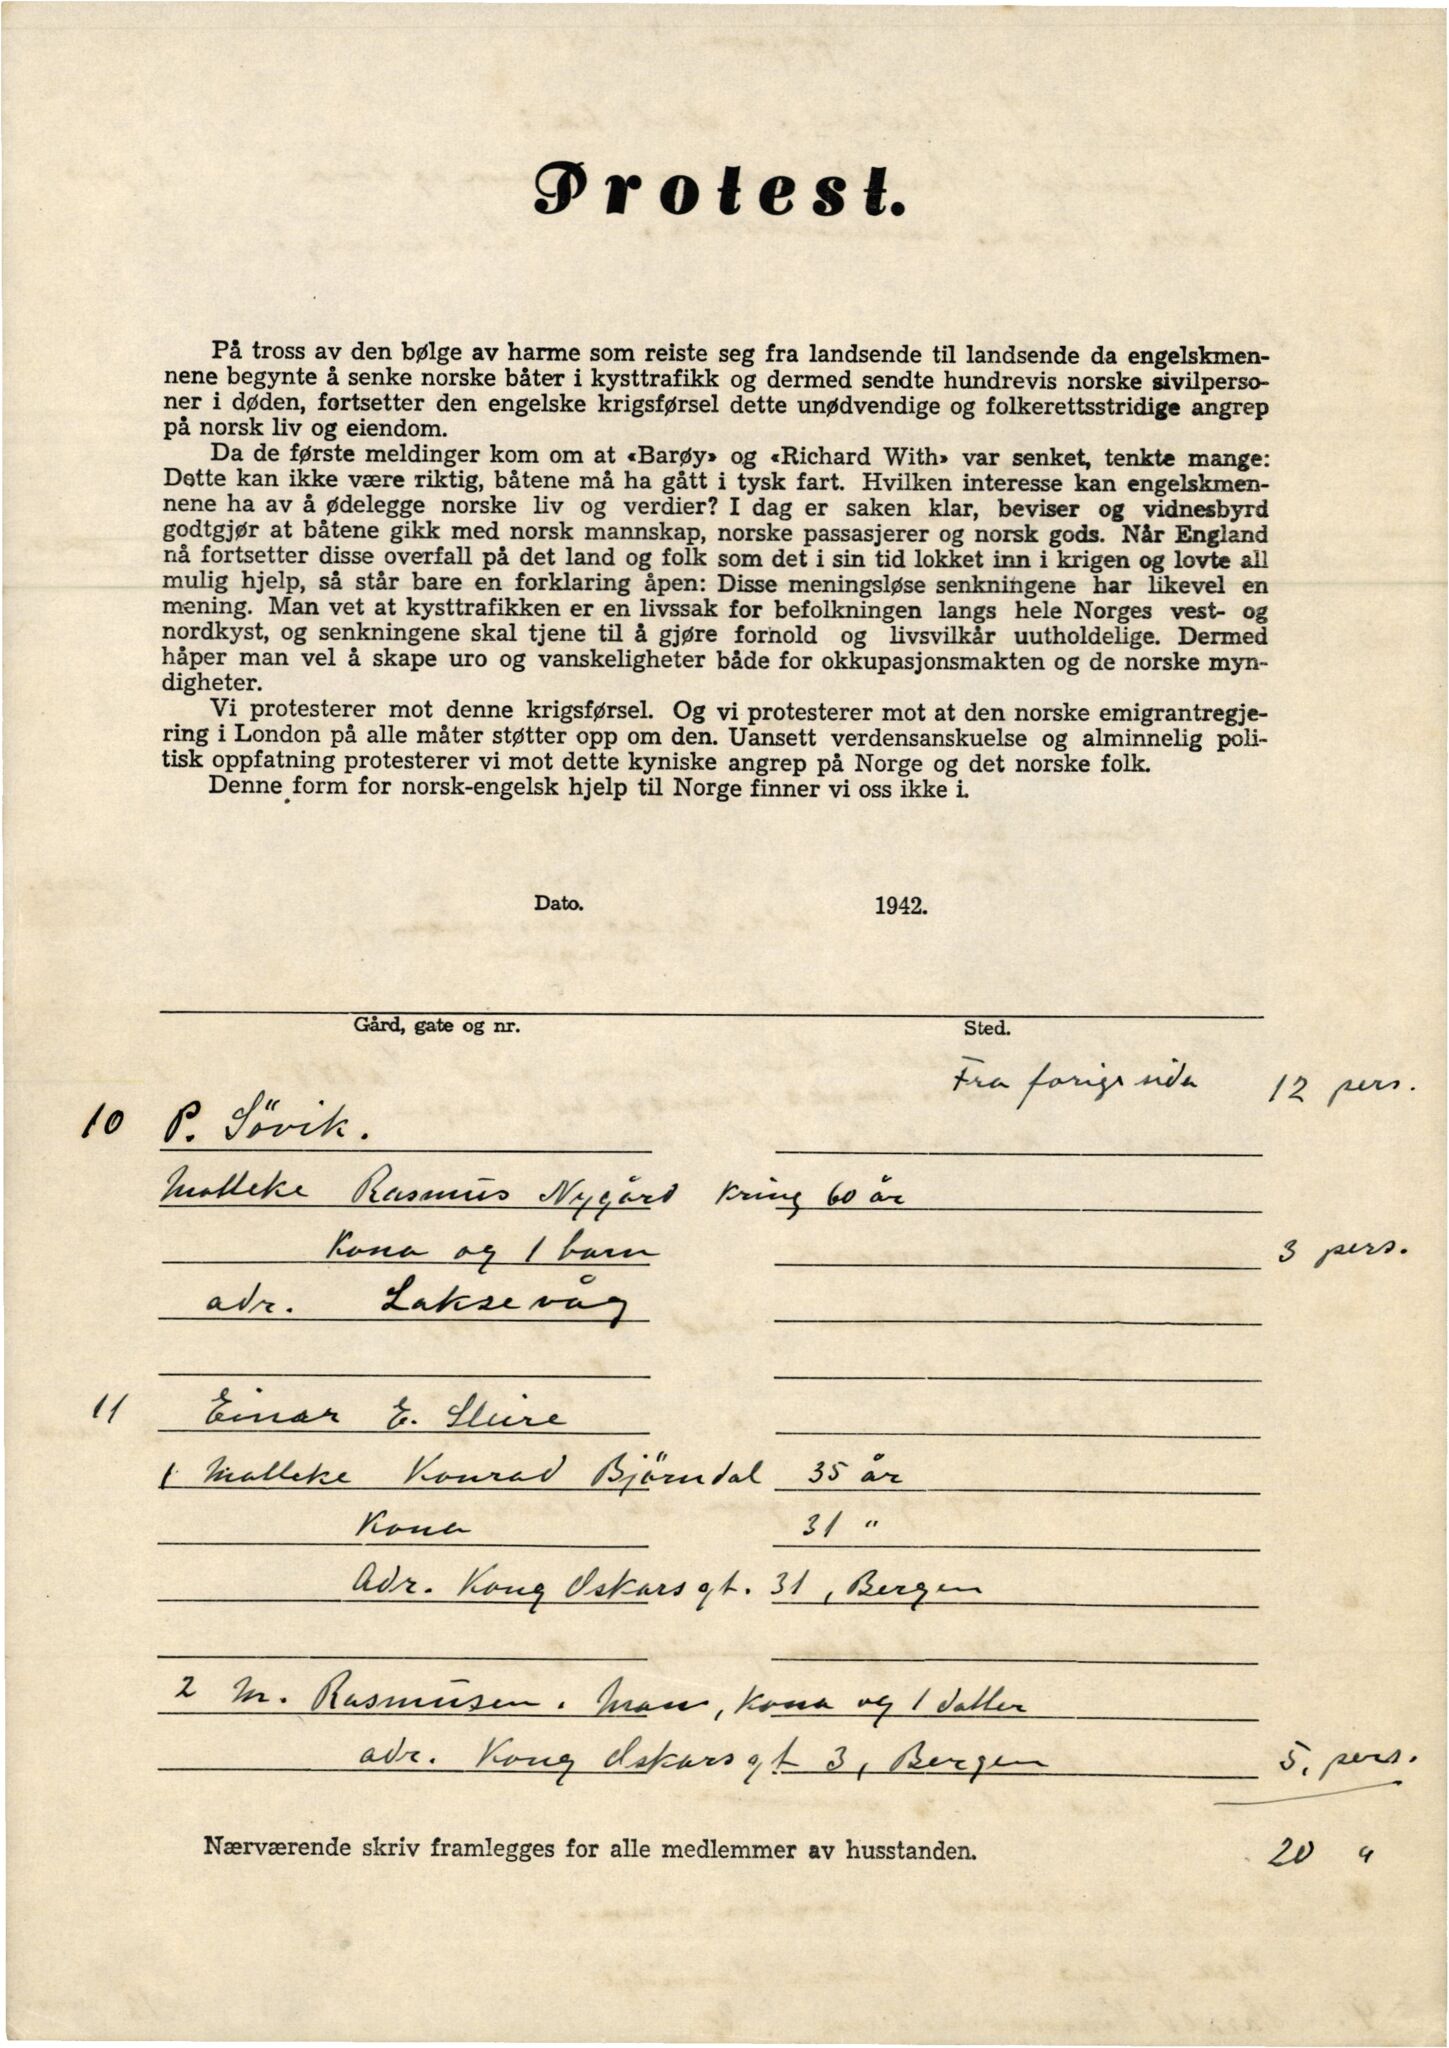 Protest.
På tross av den bølge av harme som reiste seg fra landsende til landsende da engelskmen-
nene begynte å senke norske båter i kysttrafikk og dermed sendte hundrevis norske sivilperso-
ner i døden, fortsetter den engelske krigsførsel dette unødvendige og folkerettsstridige angrep
på norsk liv og eiendom.
Da de første meldinger kom om at «Barøy» og «Richard With» var senket, tenkte mange:
Dette kan ikke være riktig, båtene må ha gått i tysk fart. Hvilken interesse kan engelskmen-
nene ha av å ødelegge norske liv og verdier? I dag er saken klar, beviser og vidnesbyrd
godtgjør at båtene gikk med norsk mannskap, norske passasjerer og norsk gods. Når England
nå fortsetter disse overfall på det land og folk som det i sin tid lokket inn i krigen og lovte all
mulig hjelp, så står bare en forklaring åpen: Disse meningsløse senkningene har likevel en
mening. Man vet at kysttrafikken er en livssak for befolkningen langs hele Norges vest- og
nordkyst, og senkningene skal tjene til å gjøre forhold og livsvilkår uutholdelige. Dermed
håper man vel å skape uro og vanskeligheter både for okkupasjonsmakten og de norske myn-
digheter.
Vi protesterer mot denne krigsførsel. Og vi protesterer mot at den norske emigrantregje-
ring i London på alle måter støtter opp om den. Uansett verdensanskuelse og alminnelig poli-
tisk oppfatning protesterer vi mot dette kyniske angrep på Norge og det norske folk.
Denne form for norsk-engelsk hjelp til Norge finner vi oss ikke i.
Dato. 1942.
Gård, gate og nr. Sted.
Fra forige sida 12 pers.
10 P. Sövik.
Malleke Rasmus Nygård kring 60 år
Kona og 1 barn 3 pers.
adr. Laksevåg
11 Einar E. Sleire
1 Malleke Konrad Björndal 35 år
Kona 31 "
Adr. Kong Oskarsgt. 31, Bergen
2 M. Rasmusen. Man, kona og 1 datter
adr. Kong Oskarsgt 3, Bergen 5. pers.
Nærværende skriv framlegges for alle medlemmer av husstanden. 20 "